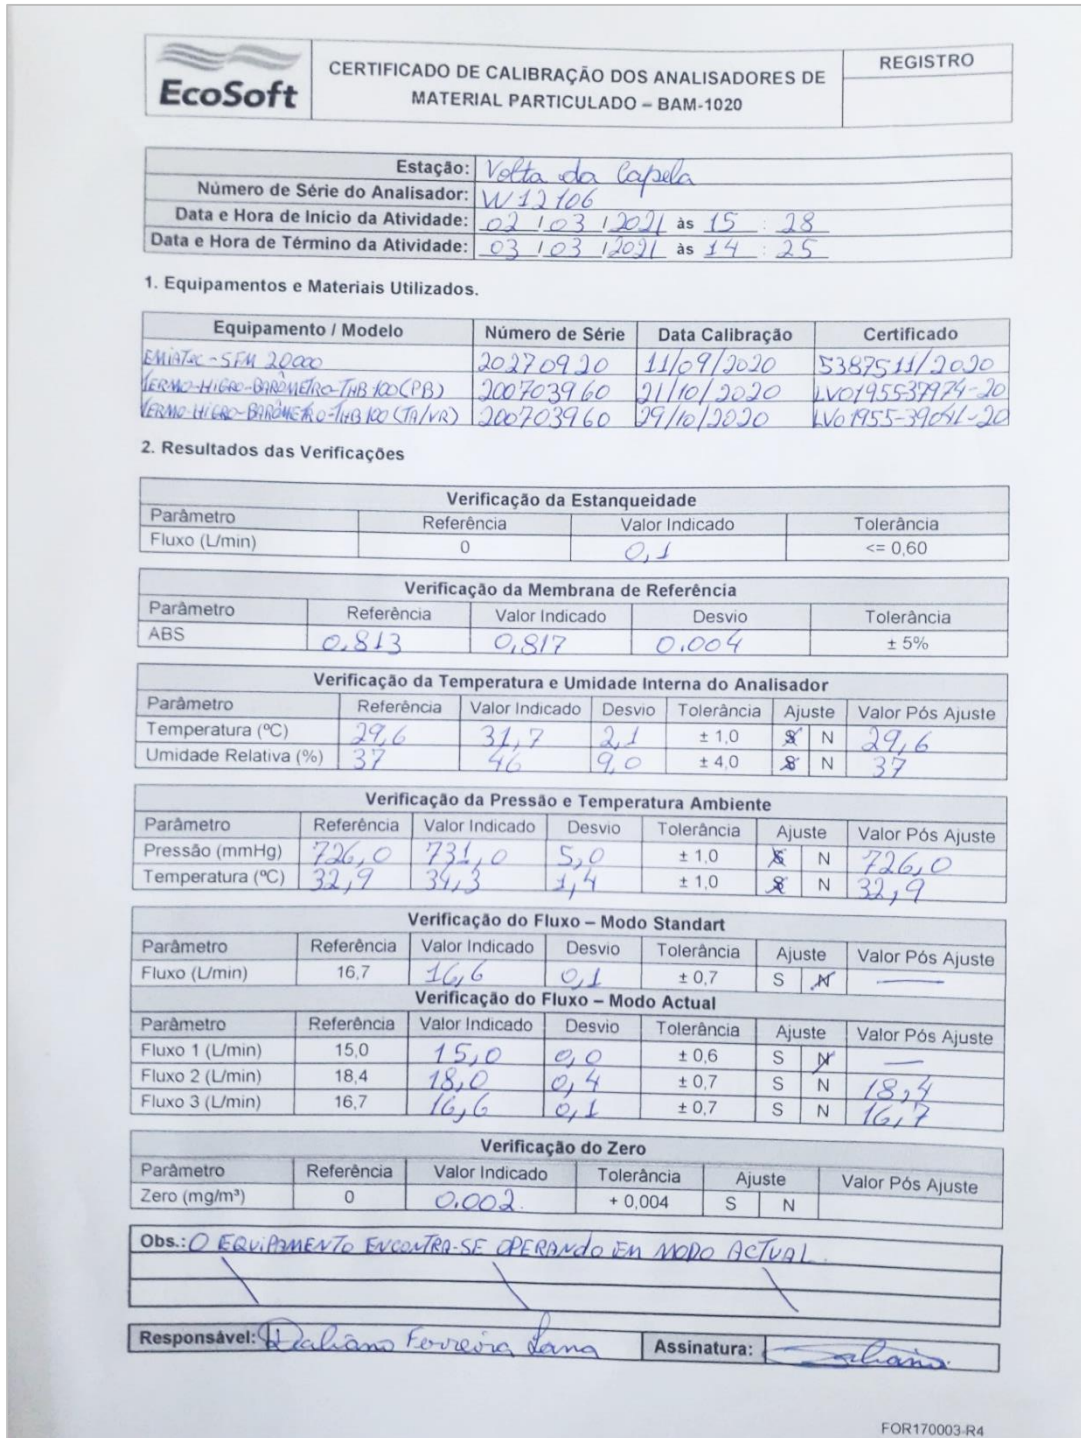 EcoSoft
CERTIFICADO DE CALIBRAÇÃO DOS ANALISADORES DE
MATERIAL PARTICULADO – BAM-1020
REGISTRO
Estação: Volta da Capela
Número de Série do Analisador: W12106
Data e Hora de Início da Atividade: 02 / 03 / 2021 às 15 : 28
Data e Hora de Término da Atividade: 03 / 03 / 2021 às 14 : 25
1. Equipamentos e Materiais Utilizados.
Equipamento / Modelo Número de Série Data Calibração Certificado
SFM 20000 20270920 11/09/2020 5387511/2020
TERMO-HIGRO-BARÔMETRO-THB100(PB) 200703960 21/10/2020 LV01955-37974-20
TERMO-HIGRO-BARÔMETRO-THB100(TA/VR) 200703960 29/10/2020 LV01955-39041-20
2. Resultados das Verificações
Verificação da Estanqueidade
Parâmetro Referência Valor Indicado Tolerância
Fluxo (L/min) 0 0,1 <= 0,60
Verificação da Membrana de Referência
Parâmetro Referência Valor Indicado Desvio Tolerância
ABS 0,813 0,817 0.004 ± 5%
Verificação da Temperatura e Umidade Interna do Analisador
Parâmetro Referência Valor Indicado Desvio Tolerância Ajuste Valor Pós Ajuste
Temperatura (ºC) 29,6 31,7 2,1 ± 1,0 S N 29,6
Umidade Relativa (%) 37 46 9,0 ± 4,0 S N 37
Verificação da Pressão e Temperatura Ambiente
Parâmetro Referência Valor Indicado Desvio Tolerância Ajuste Valor Pós Ajuste
Pressão (mmHg) 726,0 731,0 5,0 ± 1,0 S N 726,0
Temperatura (ºC) 32,9 34,3 1,4 ± 1,0 S N 32,9
Verificação do Fluxo – Modo Standart
Parâmetro Referência Valor Indicado Desvio Tolerância Ajuste Valor Pós Ajuste
Fluxo (L/min) 16,7 16,6 0,1 ± 0,7 S N —
Verificação do Fluxo – Modo Actual
Parâmetro Referência Valor Indicado Desvio Tolerância Ajuste Valor Pós Ajuste
Fluxo 1 (L/min) 15,0 15,0 0,0 ± 0,6 S N —
Fluxo 2 (L/min) 18,4 18,0 0,4 ± 0,7 S N 18,4
Fluxo 3 (L/min) 16,7 16,6 0,1 ± 0,7 S N 16,7
Verificação do Zero
Parâmetro Referência Valor Indicado Tolerância Ajuste Valor Pós Ajuste
Zero (mg/m³) 0 0.002. + 0,004 S N
Obs.: O EQUIPAMENTO ENCONTRA-SE OPERANDO EM MODO ACTUAL.
Responsável: Daliano Ferreira Lana Assinatura: Daliano
FOR170003-R4